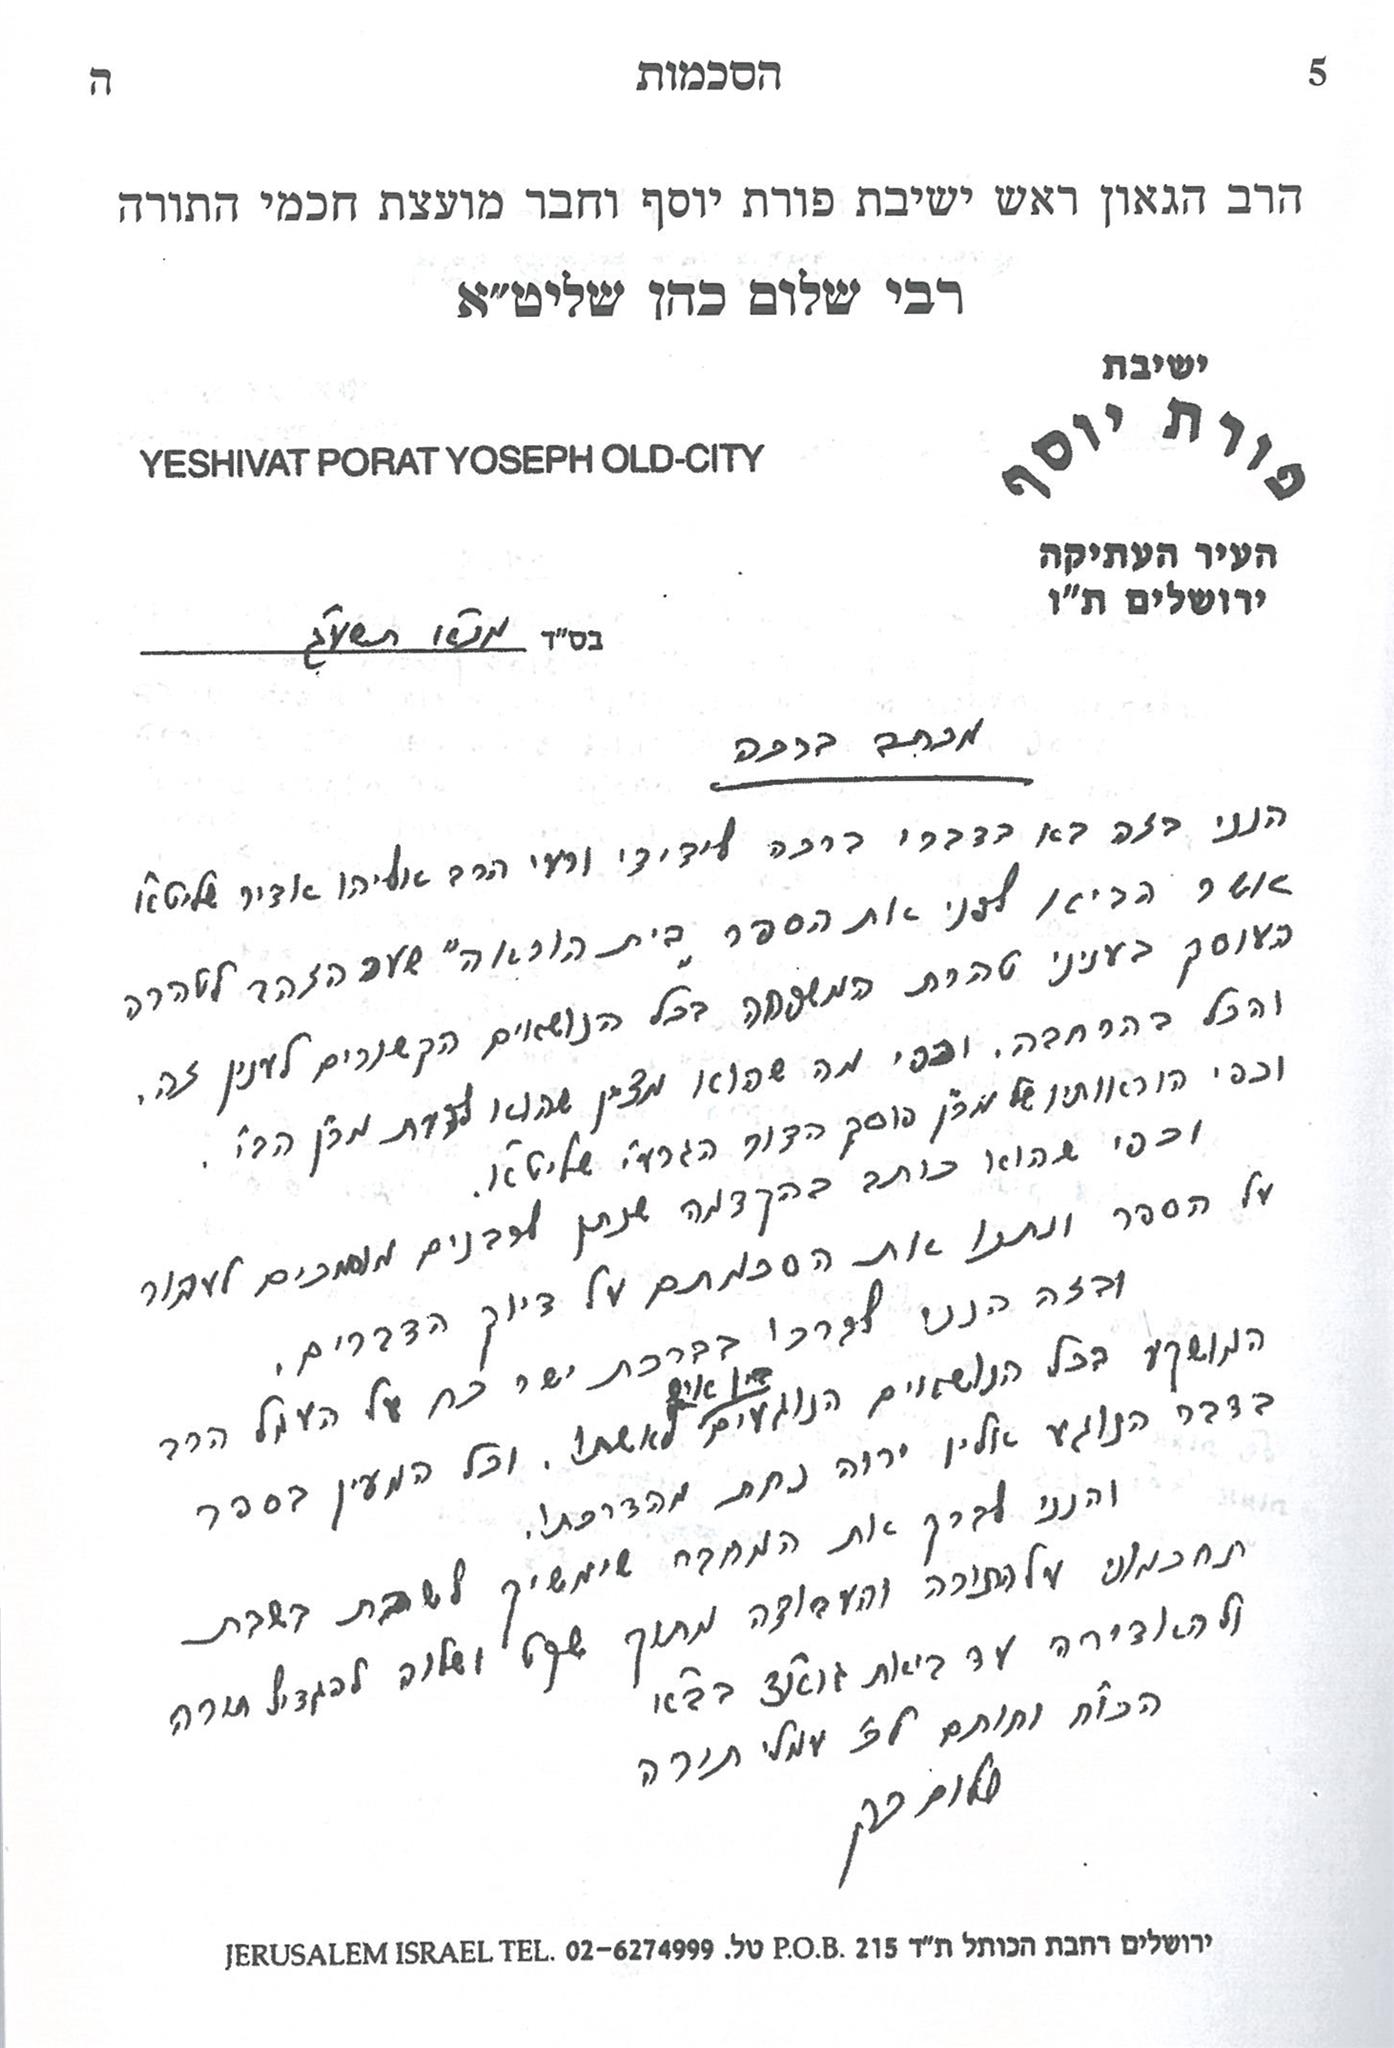 5 הסכמות ה
הרב הגאון ראש ישיבת פורת יוסף וחבר מועצת חכמי התורה
רבי שלום כהן שליט״א
ישיבת
פורת יוסף
YESHIVAT PORAT YOSEPH OLD-CITY
העיר העתיקה
ירושלים ת״ו
בס״ד מנ״א תשע״ג
מכתב ברכה
הנני בזה בא בדברי ברכה לידידי ורעי הרב אליהו אדיר שליט״א
אשר הביא לפני את הספר „בית הוראה״ שער הזהב לטהרה
העוסק בעניני טהרת המשפחה בכל הנושאים הקשורים לענין זה,
והכל בהרחבה. וכפי מה שהוא מציין שהוא לדעת מרן הב״י.
וכפי הוראותיו של מרן פוסק הדור הגרע״י שליט״א.
וכפי שהוא כותב בהקדמה שנתן לרבנים מוסמכים לעבור
על הספר ונתנו את הסכמתם על דיוק הדברים.
ובזה הנני לברכו בברכת ישר כח על העמל הרב
המושקע בכל הנושאים הנוגעים בין איש לאשתו. וכל המעין בספר
בדבר הנוגע אליו ירוה נחת מהדרכתו.
והנני לברך את המחבר שימשיך לשבת בשבת
תחכמוני על התורה והעבודה מתוך שקט ושלוה להגדיל תורה
ולהאדירה עד ביאת גוא״צ בב״א
הכו״ח וחותם לכ׳ עמלי תורה
שלום כהן
ירושלים רחבת הכותל ת״ד 215 P.O.B. טל. 02-6274999 JERUSALEM ISRAEL TEL.